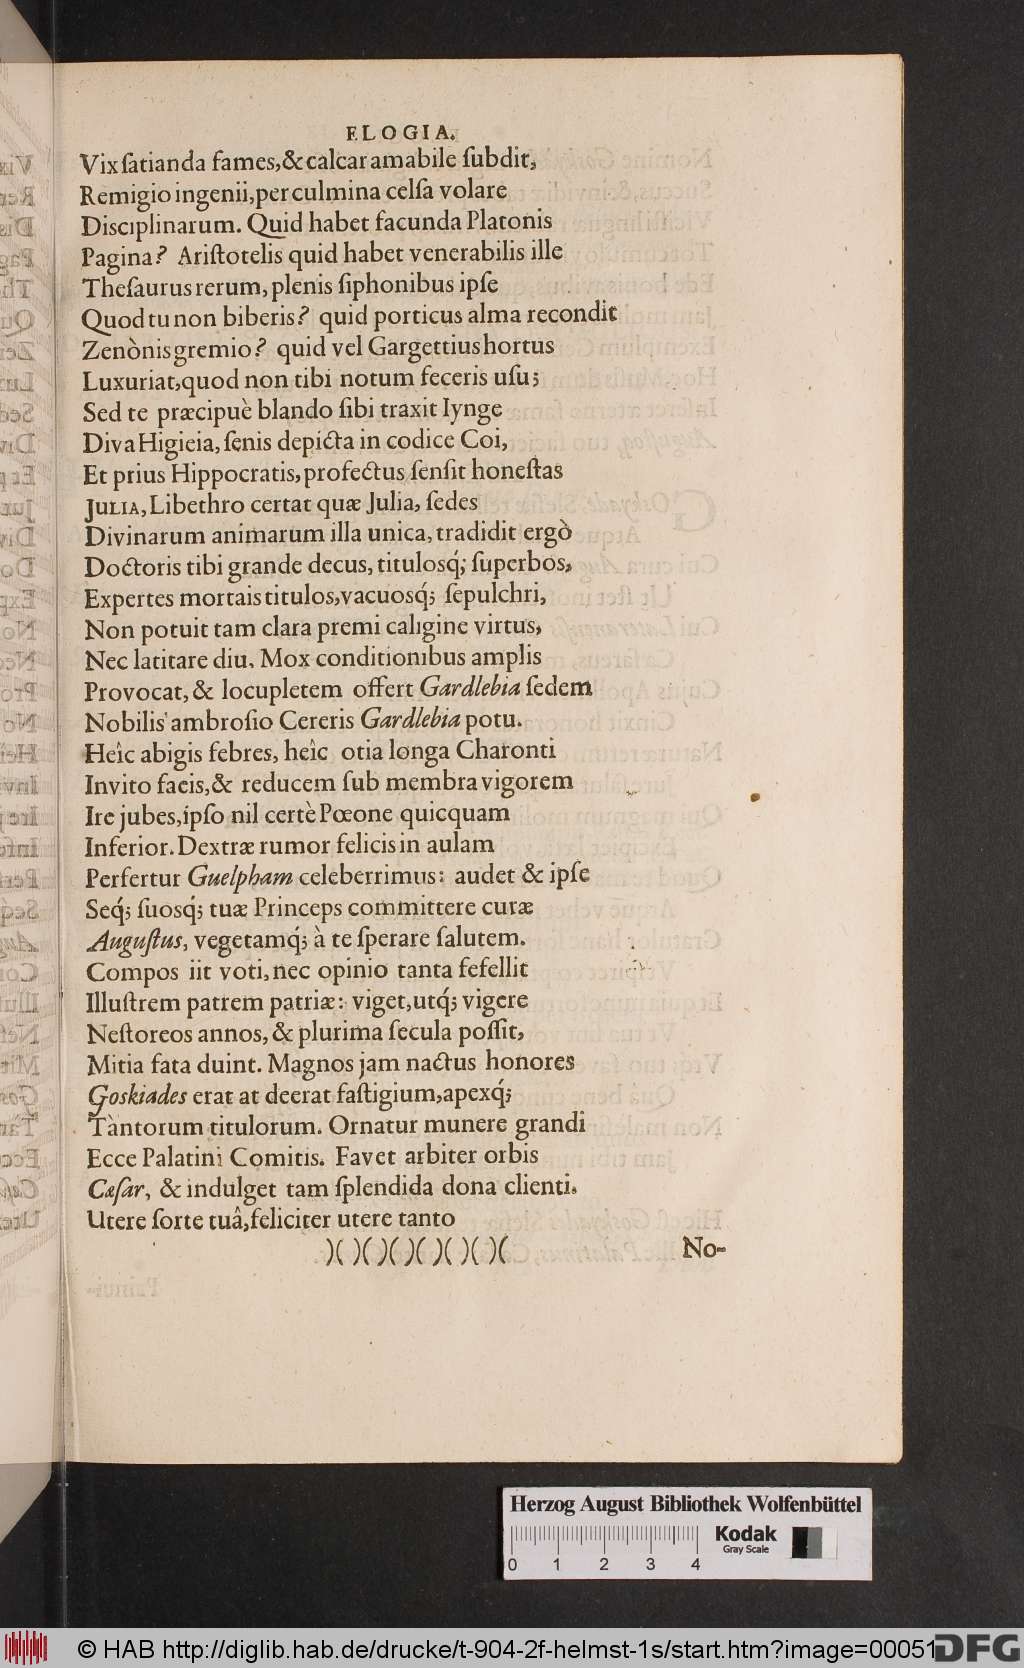 ELOGIA.
Vix ſatianda fames,& calcar amabile ſubdit,
Remigio ingenii, per culmina celſa volare
Diſciplinarum. Quid habet facunda Platonis
Pagina? Ariſtotelis quid habet venerabilis ille
Theſaurus rerum, plenis ſiphonibus ipſe
Quod tu non biberis? quid porticus alma recondit
Zenònis gremio? quid vel Gargettius hortus
Luxuriat, quod non tibi notum feceris uſu;
Sed te præcipuè blando ſibi traxit Iynge
Diva Higieia, ſenis depicta in codice Coi,
Et prius Hippocratis, profectus ſenſit honeſtas
JULIA, Libethro certat quæ Julia, ſedes
Divinarum animarum illa unica, tradidit ergò
Doctoris tibi grande decus, titulosq́; ſuperbos,
Expertes mortais titulos, vacuosq́; ſepulchri,
Non potuit tam clara premi caligine virtus,
Nec latitare diu. Mox conditionibus amplis
Provocat, & locupletem offert Gardlebia ſedem
Nobilis ambroſio Cereris Gardlebia potu.
Heîc abigis febres, heîc otia longa Charonti
Invito facis, & reducem ſub membra vigorem
Ire jubes, ipſo nil certè Pœone quicquam
Inferior. Dextræ rumor felicis in aulam
Perfertur Guelpham celeberrimus: audet & ipſe
Seq́; ſuosq́; tuæ Princeps committere curæ
Auguſtus, vegetamq́; à te ſperare ſalutem.
Compos iit voti, nec opinio tanta fefellit
Illuſtrem patrem patriæ: viget, utq́; vigere
Neſtoreos annos, & plurima ſecula poſſit,
Mitia fata duint. Magnos jam nactus honores
Goskiades erat at deerat faſtigium, apexq́;
Tàntorum titulorum. Ornatur munere grandi
Ecce Palatini Comitis. Favet arbiter orbis
Cæſar, & indulget tam ſplendida dona clienti.
Utere ſorte tuâ, feliciter utere tanto
)( )( )( )( )( )( )(
No-
Herzog August Bibliothek Wolfenbüttel
Kodak
Gray Scale
0 1 2 3 4
© HAB http://diglib.hab.de/drucke/t-904-2f-helmst-1s/start.htm?image=00051
DFG